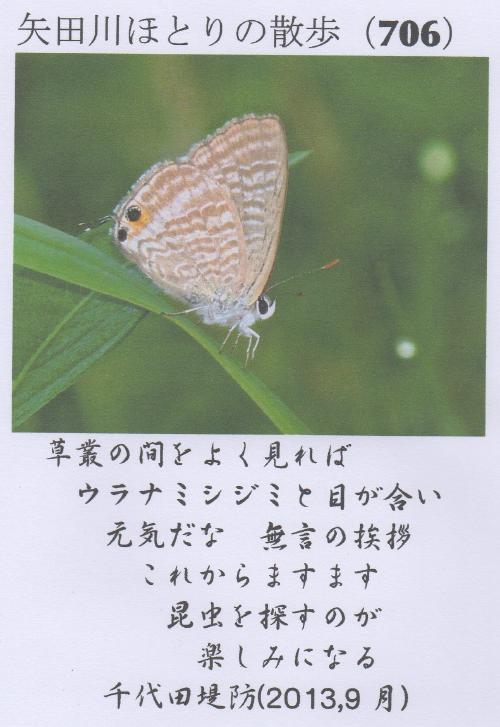 矢田川ほとりの散歩（706）
草叢の間をよく見れば
ウラナミシジミと目が合い
元気だな　無言の挨拶
これからますます
昆虫を探すのが
楽しみになる
千代田堤防(2013,9 月)